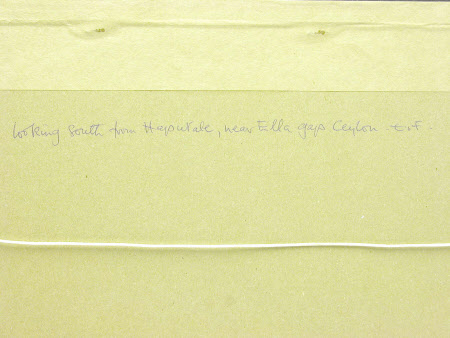 looking south from Haputale, near Ella gaps Ceylon E.F.